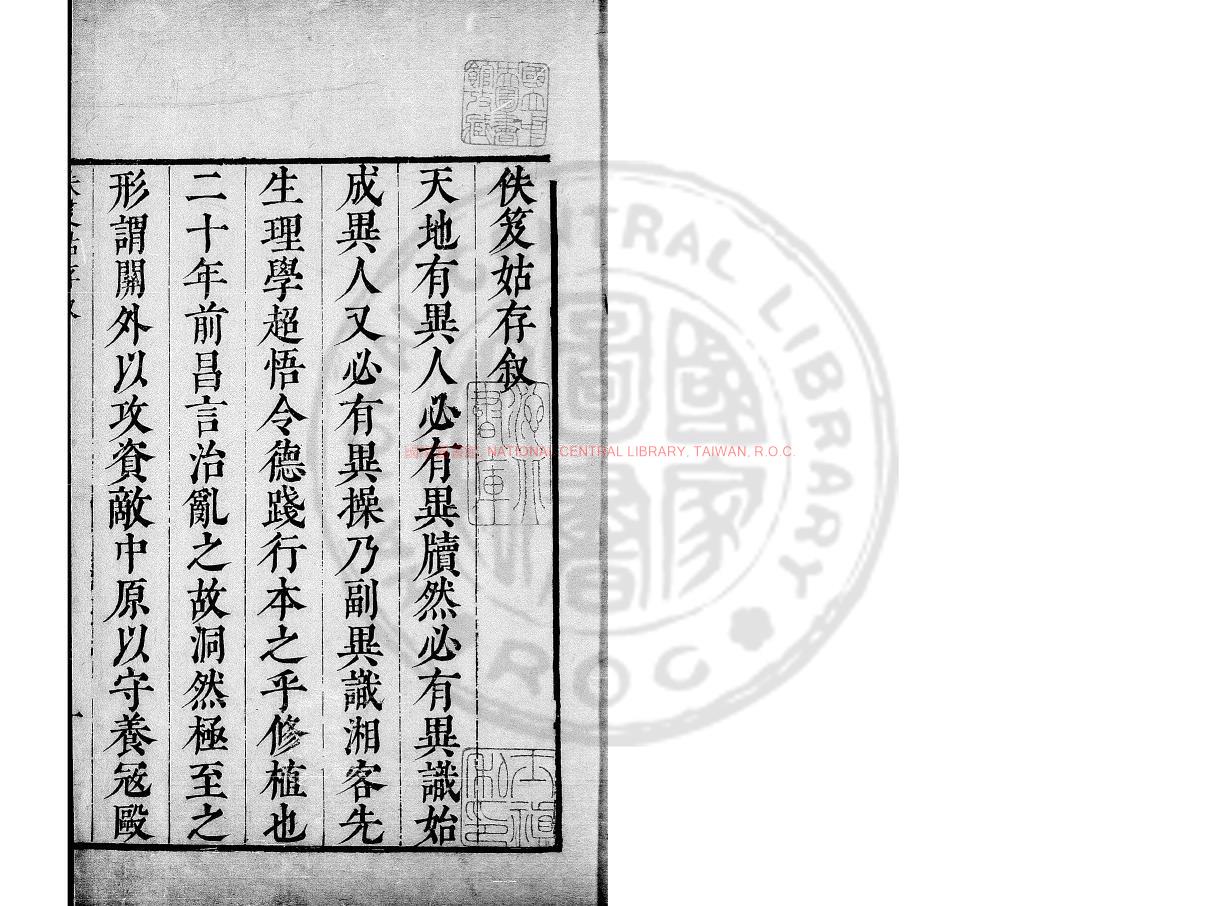 佚笈姑存叙
天地有異人必有異牘然必有異識始
成異人又必有異操乃副異識湘客先
生理學超悟令德踐行本之乎修植也
二十年前昌言治亂之故洞然極至之
形謂關外以攻資敵中原以守養寇毆
佚笈姑存叙
一
國立中央圖書館收藏
NATIONAL CENTRAL LIBRARY, TAIWAN, R.O.C.